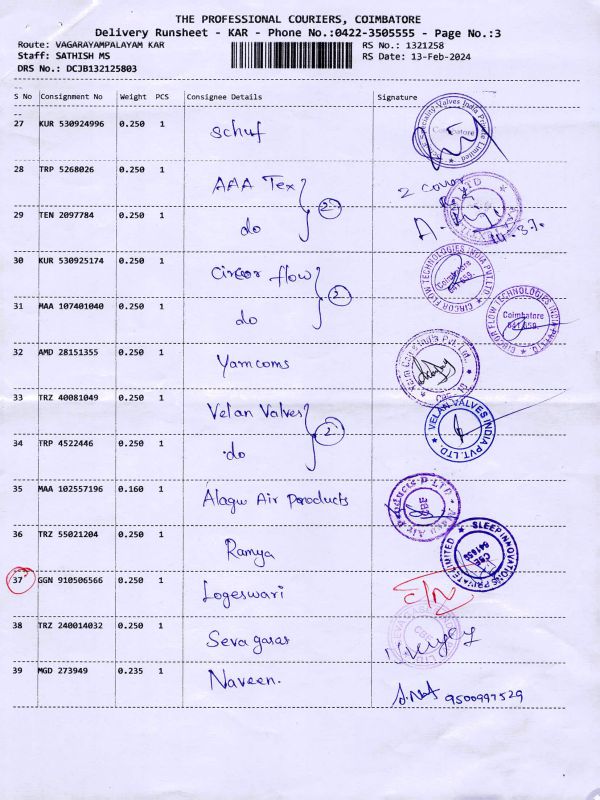 THE PROFESSIONAL COURIERS, COIMBATORE
Delivery Runsheet - KAR - Phone No.:0422-3505555 - Page No.:3
Route: VAGARAYAMPALAYAM KAR RS No.: 1321258
Staff: SATHISH MS RS Date: 13-Feb-2024
DRS No.: DCJB132125803
S No Consignment No Weight PCS Consignee Details Signature
27 KUR 530924996 0.250 1 Schuf
Coimbatore
28 TRP 5268026 0.250 1 AAA Tex 2
2 cover
29 TEN 2097784 0.250 1 do
30 KUR 530925174 0.250 1 Circor flow 2
CIRCOR FLOW TECHNOLOGIES INDIA PVT.LTD
Coimbatore
641 659.
31 MAA 107401040 0.250 1 do
CIRCOR FLOW TECHNOLOGIES INDIA PVT.LTD
Coimbatore
641 659.
32 AMD 28151355 0.250 1 Yamcoms
33 TRZ 40081049 0.250 1 Velan Valves 2
VELAN VALVES INDIA PVT. LTD.
34 TRP 4522446 0.250 1 do
35 MAA 102557196 0.160 1 Alagu Air Products
CBE
36 TRZ 55021204 0.250 1 Ramya
SLEEP INNOVATIONS PRIVATE LIMITED
CBE
641659
37 GGN 910506566 0.250 1 Logeswari
C/N
38 TRZ 240014032 0.250 1 Seva gases
CBE
39 MGD 273949 0.235 1 Naveen.
9500997529